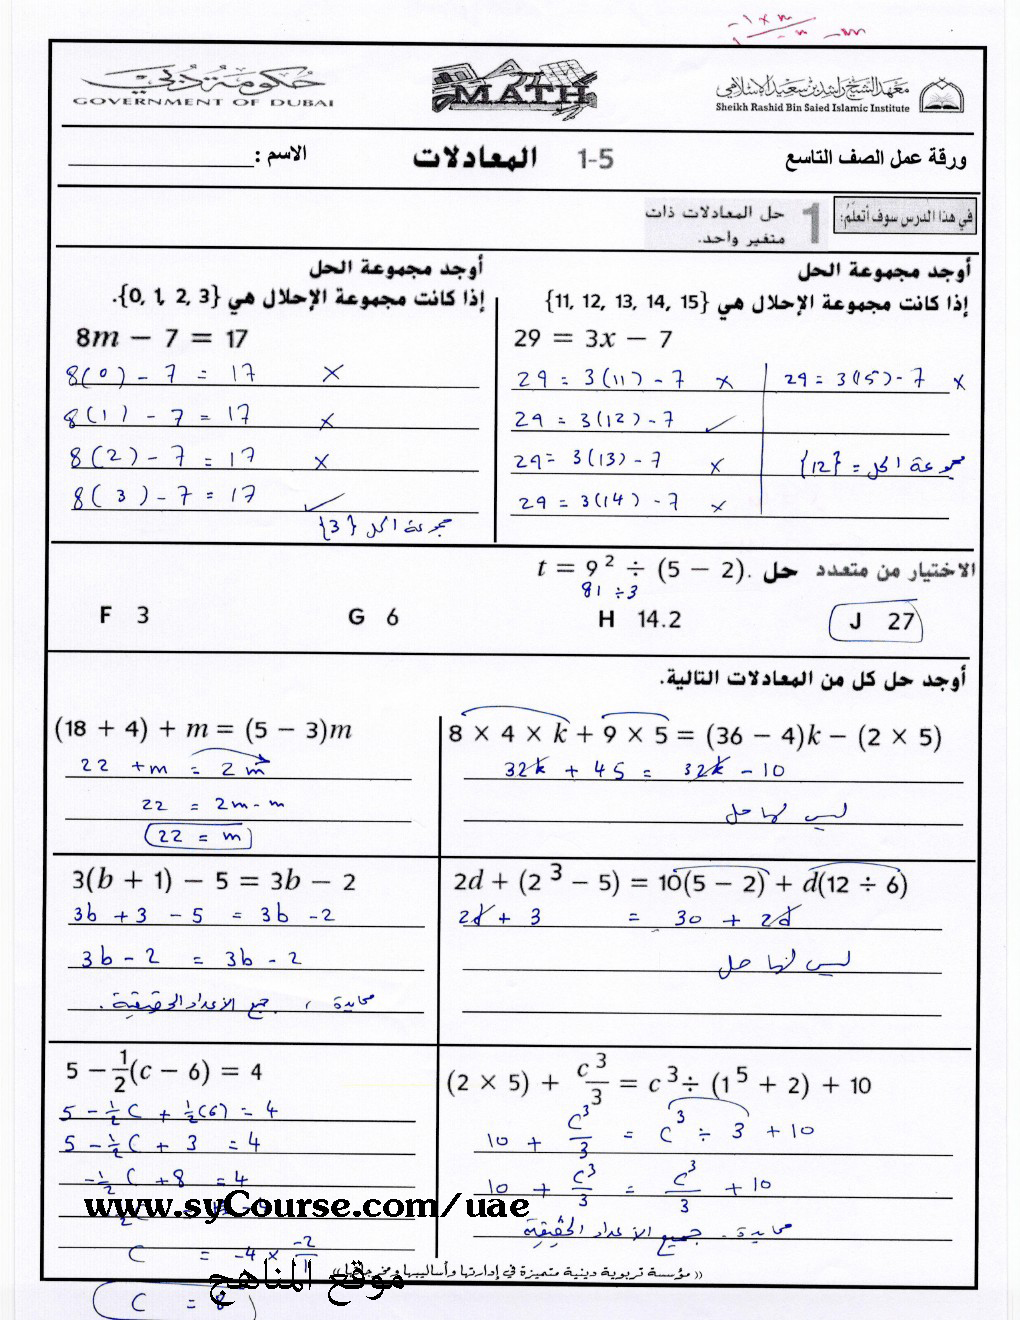 -1 × m
حكومة دبي
GOVERNMENT OF DUBAI
MATH
معهد الشيخ راشد بن سعيد الإسلامي
Sheikh Rashid Bin Saied Islamic Institute
ورقة عمل الصف التاسع
1-5 المعادلات
الاسم :
في هذا الدرس سوف أتعلم:
1 حل المعادلات ذات
متغير واحد.
أوجد مجموعة الحل
إذا كانت مجموعة الإحلال هي {11, 12, 13, 14, 15}
29 = 3x − 7
29 = 3(11) - 7 ×
29 = 3(12) - 7 ✓
29 = 3(13) - 7 ×
29 = 3(14) - 7 ×
29 = 3(15) - 7 ×
مجموعة الحل = {12}
أوجد مجموعة الحل
إذا كانت مجموعة الإحلال هي {0, 1, 2, 3}.
8m − 7 = 17
8(0) - 7 = 17 ×
8(1) - 7 = 17 ×
8(2) - 7 = 17 ×
8(3) - 7 = 17 ✓
مجموعة الحل {3}
الاختيار من متعدد حل t = 9² ÷ (5 − 2).
81 ÷ 3
F 3 G 6 H 14.2 J 27
أوجد حل كل من المعادلات التالية.
8 × 4 × k + 9 × 5 = (36 − 4)k − (2 × 5)
32k + 45 = 32k - 10
ليس لها حل
(18 + 4) + m = (5 − 3)m
22 + m = 2m
22 = 2m - m
22 = m
2d + (2³ − 5) = 10(5 − 2) + d(12 ÷ 6)
2d + 3 = 30 + 2d
ليس لها حل
3(b + 1) − 5 = 3b − 2
3b + 3 - 5 = 3b - 2
3b - 2 = 3b - 2
محايدة ، جميع الأعداد الحقيقية .
(2 × 5) + c³/3 = c³ ÷ (1⁵ + 2) + 10
10 + c³/3 = c³ ÷ 3 + 10
10 + c³/3 = c³/3 + 10
محايدة . جميع الأعداد الحقيقية
5 − 1/2(c − 6) = 4
5 - 1/2 c + 1/2(6) = 4
5 - 1/2 c + 3 = 4
-1/2 c + 8 = 4
www.syCourse.com/uae
c = -4 × -2/1
c = 8
موقع المناهج
(( مؤسسة تربوية دينية متميزة في إدارتها وأساليبها ومخرجاتها ))